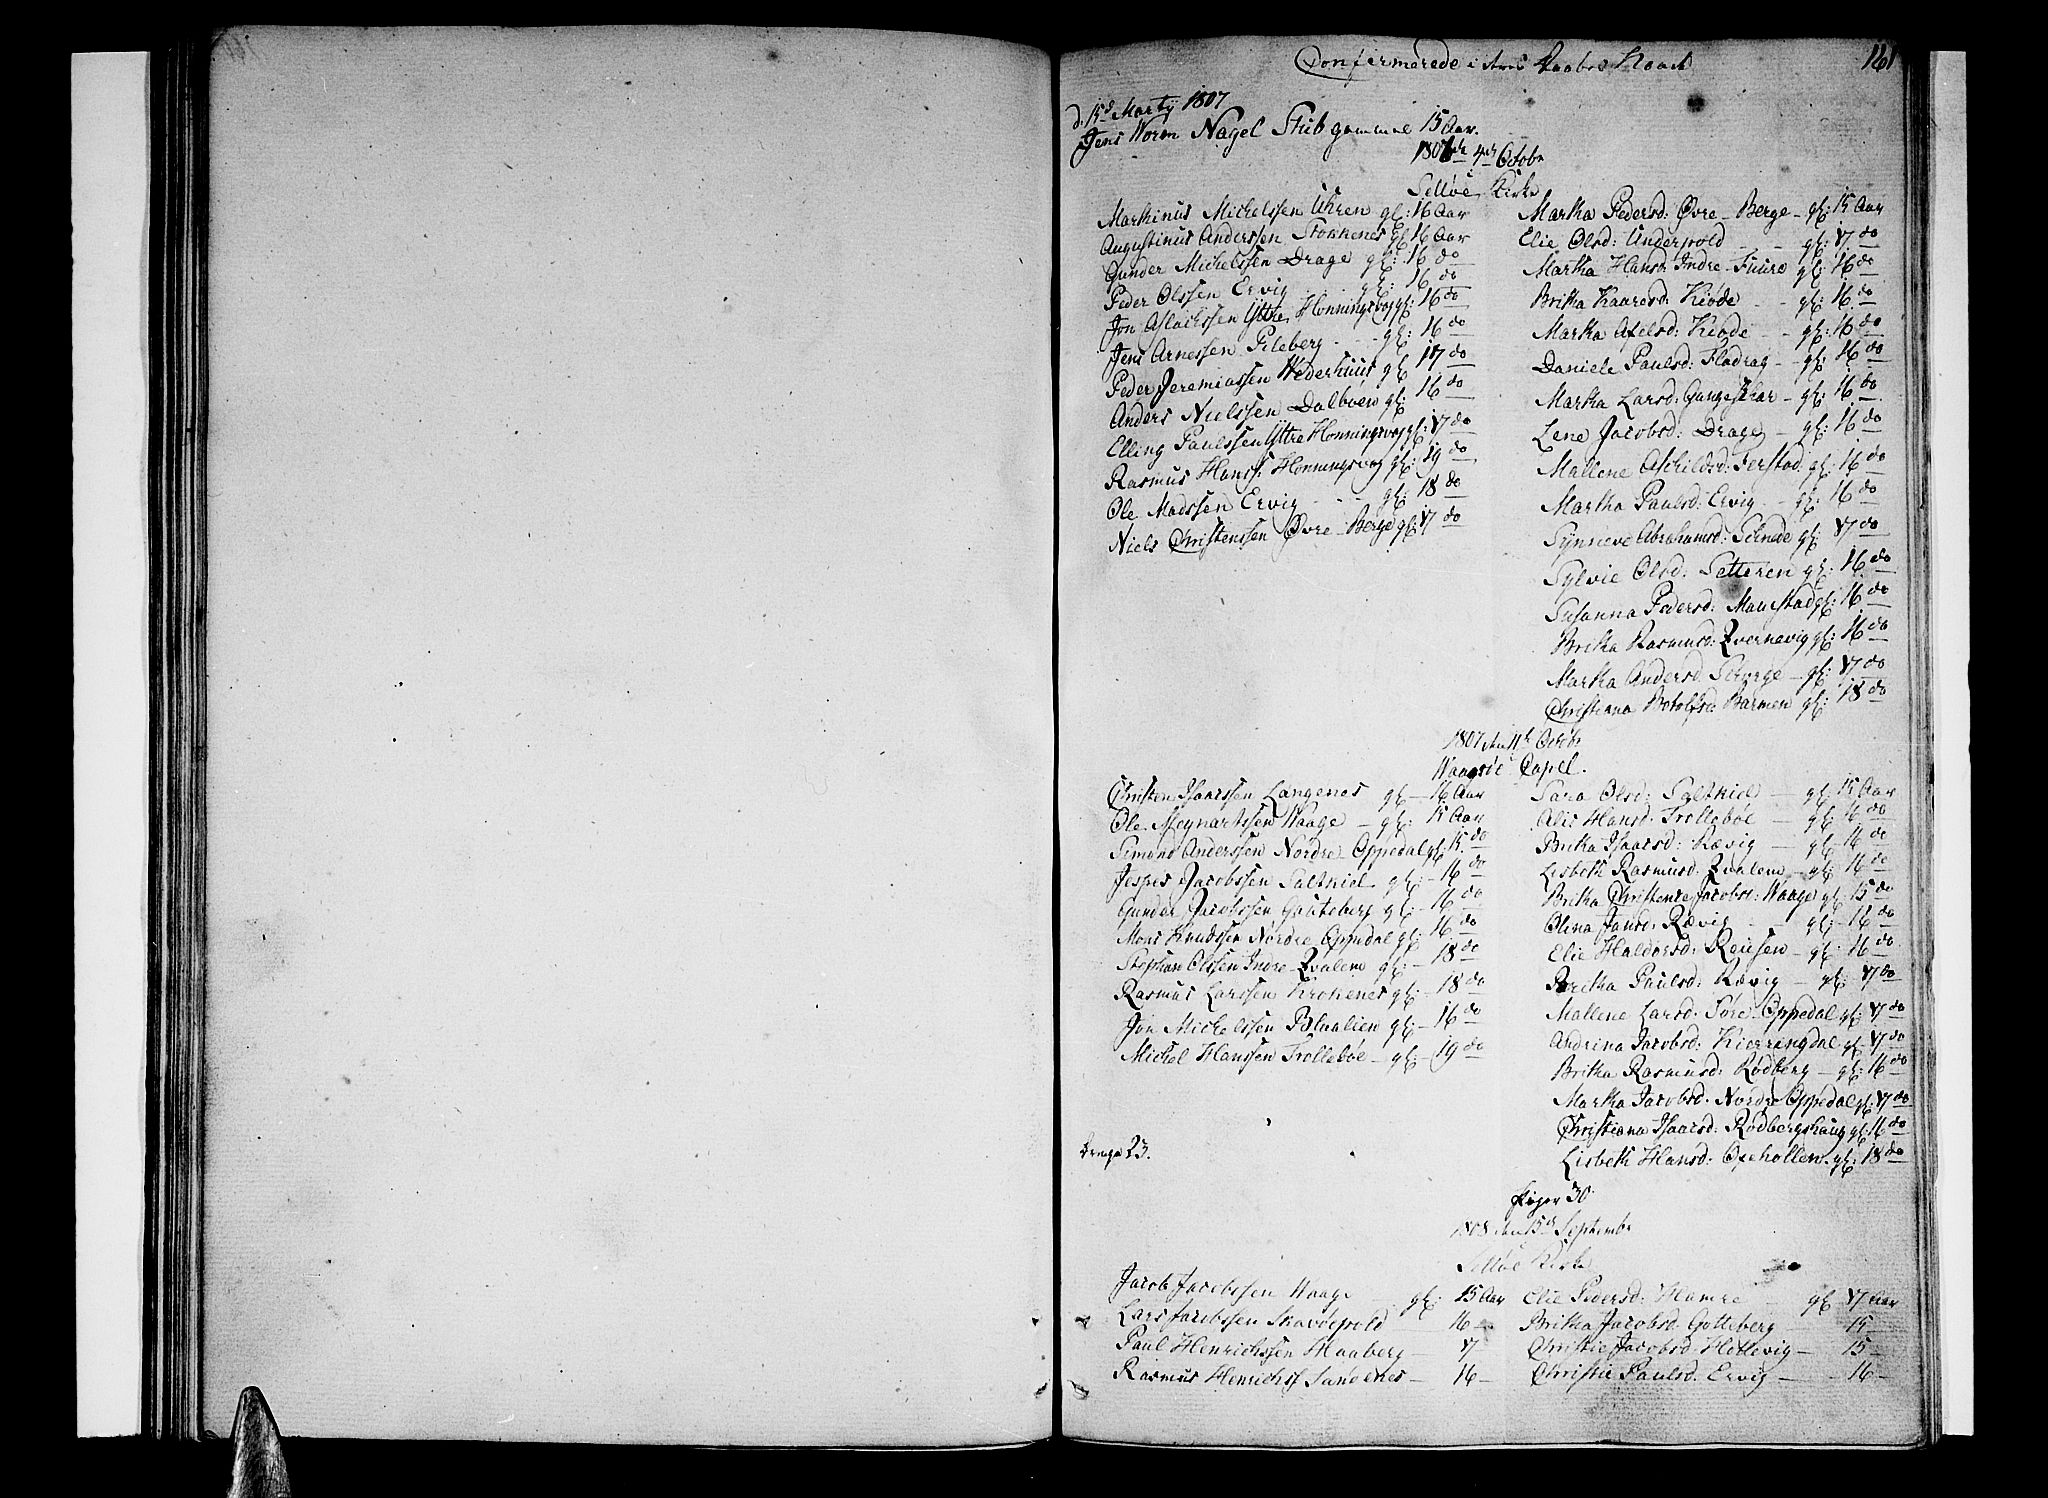 Confirmerede i deres Daabes Naade
161
d. 15d Martij 1807
Jens Worm Nagel Stub gammel 15 Aar.
1807 4de Octobr
Selløe Kirke
Marthinus Michelssen Uhren gl: 16 Aar
Augustinus Anderssen Stokkenes gl 16 Aar
Gunder Michelssen Drage gl: 16 do
Peder Olssen Ervig gl: 16 do
Jon Aslachssen Yttre Honningsvog gl: 16 do
Jens Arnessen Pileberg gl: 16 do
Peder Jeremiassen Wederhuus gl 17 do
Anders Nielssen Dalbøen gl: 16 do
Elling Paulssen Yttre Honningsvog gl: 17 do
Rasmus Hanss: Honningsvog gl: 19 do
Ole Madssen Ervig gl: 18 do
Niels Christenssen Øvre-Berge gl: 17 do
Martha Pedersd: Øvre-Berge gl: 15 Aar
Elie Olsd: gl: 17 do
Martha Hansd: Indre-Fuure gl: 16 do
Britha Kaaresd: Kiøde gl: 16 do
Martha Axelsd: Kiøde gl: 16 do
Daniele Paulsd: Fladrag gl: 16 do
Martha Larsd: gl: 16 do
Lene Jacobsd: Drage gl: 16 do
Mallene Aschildsd: Ferstad gl: 16 do
Martha Paulsd: Ervig gl: 16 do
Synneve Abrahamsd: gl: 17 do
Sylvie Olsd: Setteren gl: 16 do
Susanna Pedersd: Maurstad gl: 16 do
Britha Rasmusd: Qvernevig gl: 16 do
Martha Andersd gl: 17 do
Christiana Botolfsd: Barmen gl: 18 do
1807 den 11te Octobr
Waagsøe Capel.
Christen Isaacssen Langenes gl 16 Aar
Ole Meynartssen Waage gl: 15 Aar
Simond Anderssen Nordre-Oppedal gl: 15 do
Jesper Jacobssen Saltkiel gl: 16 do
Gunder Jacobssen Gaateberg gl 16 do
Mons Knudssen Nordre Oppedal gl: 16 do
Stephan Olssen Indre-Qvalem gl: 18 do
Rasmus Larssen Krokenes gl: 18 do
Jon Michelssen gl 16 do
Michel Hanssen Trollebøe gl: 19 do
Sara Olsd: Saltkiel gl: 15 Aar
Alis Hansd: Trollebøe gl 16 do
Britha Isaacsd: Rævig gl: 16 do
Lisbeth Rasmusd: Qvalem gl: 16 do
Britha Christence Jacobsd: Waage gl: 15 do
Olina Jansd: Rævig gl: 16 do
Elie Haldorsd: Reusen gl: 16 do
Britha Paulsd: Rævig gl: 17 do
Mallene Larsd: Søre-Oppedal gl: 17 do
Andrina Jacobsd: Kierringdal gl: 17 do
Britha Rasmusd: Rødberg gl: 16 do
Martha Jacobsd: Nordre Oppedal gl: 17 do
Christiana Isaacsd: Rødbergshaug gl: 16 do
Lisbeth Hansd: Oxehollen gl: 18 do
Drenge 23.
Piger 30
1808 den 15d Septembr
Selløe Kirke
Jacob Jacobssen Waage gl: 15 Aar
Lars Jacobssen 16
Paul Henrichssen Haaberg 17
Rasmus Henrichss Sandenes 16
Elie Pedersd: Hamre gl 17 Aar
Britha Jacobsd: Gotteberg 15
Christie Jacobsd Hettevig 15
Christie Paulsd. Ervig 16